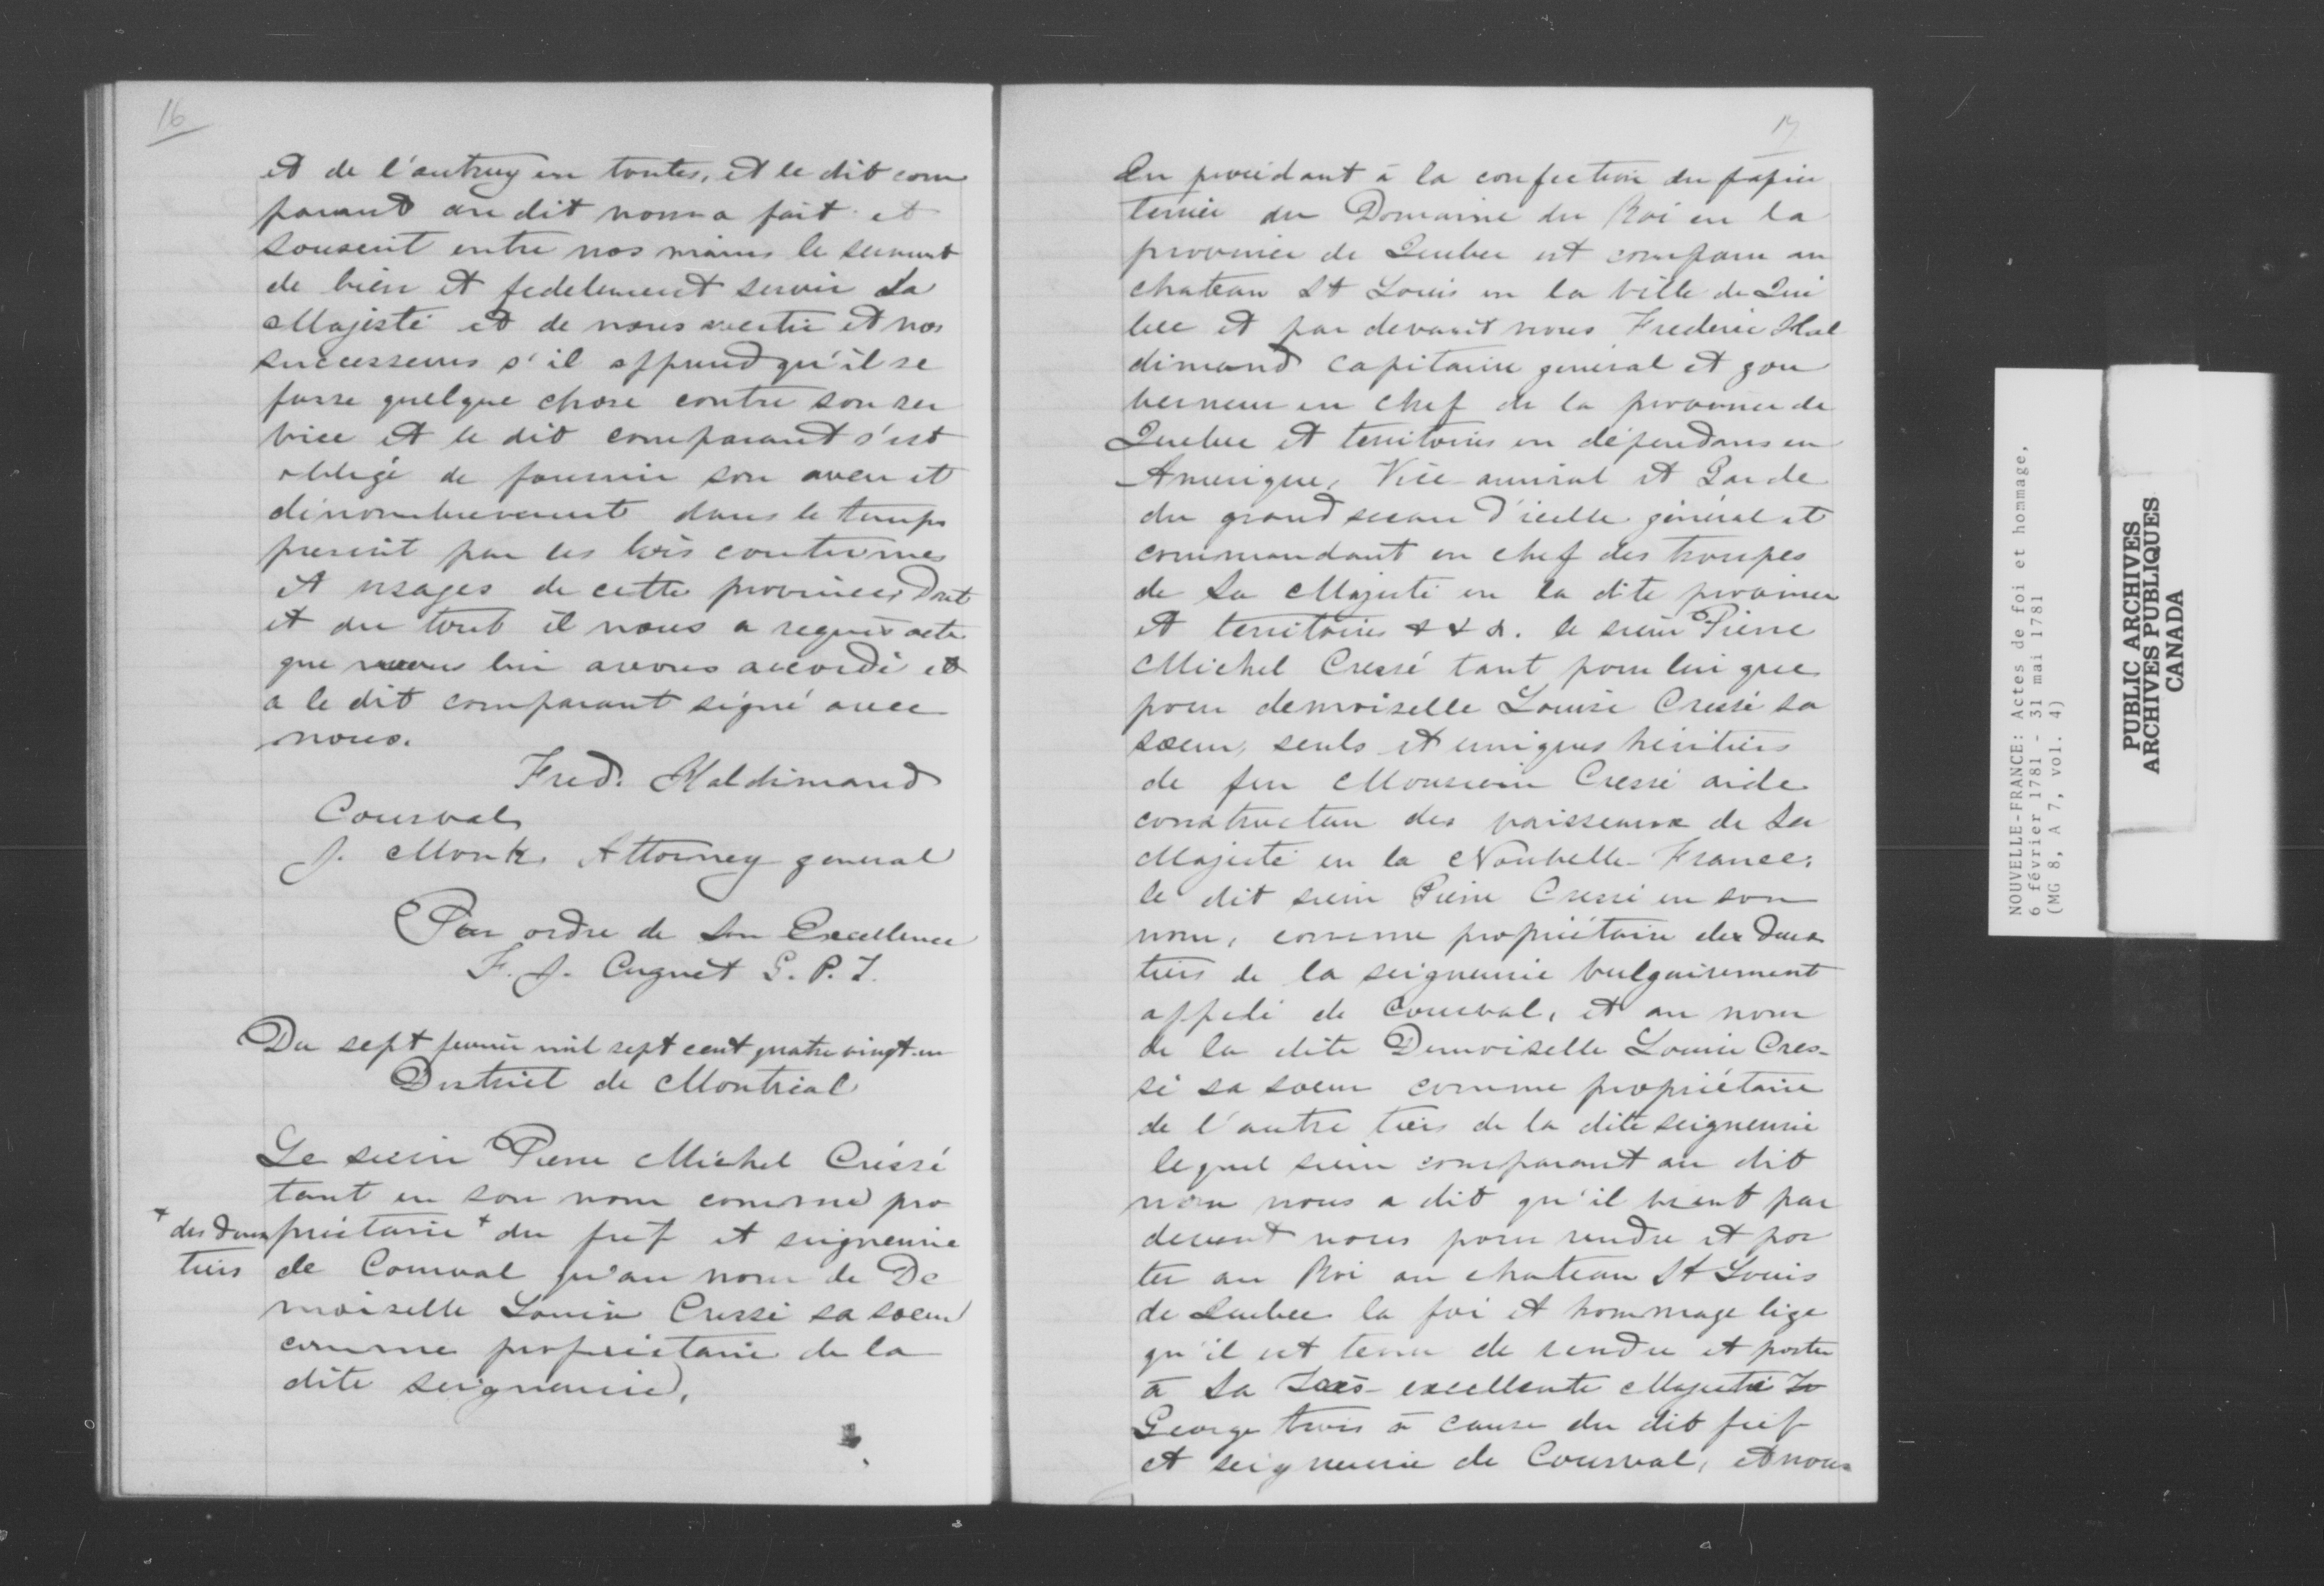 16
et de l'autruy en toutes, et le dit com
parant au dit nom a fait et
souscrit entre nos mains le serment
de bien et fedelement servir Sa
Majesté et de nous avertir et nos
successeurs s'il apprend qu'il se
fasse quelque chose contre son ser
vice et le dit comparant s'est
obligé de fournir son aveu et
dénombrement dans le temps
prescrit par les lois coutumes
et usages de cette province, Dont
et du tout il nous a requis acte
que nous lui avons accordé et
a le dit comparant signé avec
nous.
Fred. Haldimand
Courval
J. Monk, Attorney general
Par ordre de Son Excellence
F. J. Cugnet G. P. T.
Du sept fevrier mil sept cent quatre vingt un
District de Montréal
Le sieur Pierre Michel Cressé
tant en son nom comme pro
+ des deux priétaire + du fief et seigneurie
tiers de Courval qu'au nom de De
moiselle Louise Cressé sa soeur
comme propriétaire de la
dite seigneurie.
17
En procédant à la confection du papier
terrier du Domaine du Roi en la
province de Quebec est comparu au
chateau St Louis en la ville de Qué
bec et par devant nous Frederic Hal
dimand Capitaine général et gou
verneur en chef de la province de
Quebec et territoires en dépendans en
Amerique, Vice amiral et Garde
du grand sceau d'icelle général et
commandant en chef des troupes
de Sa Majesté en la dite province
et territoires & & &. le sieur Pierre
Michel Cressé tant pour lui que
pour demoiselle Louise Cressé sa
soeur, seuls et uniques héritiers
de feu Monsieur Cressé aide
constructeur des vaisseaux de Sa
Majesté en la Nouvelle-France,
le dit sieur Pierre Cressé en son
nom, comme propriétaire des deux
tiers de la seigneurie vulgairement
appelé de Courval, et au nom
de la dite Demoiselle Louise Cres-
sé sa soeur comme propriétaire
de l'autre tiers de la dite seigneurie
lequel sieur comparant au dit
nom nous a dit qu'il vient par
devant nous pour rendre et por
ter au Roi au chateau St Louis
de Quebec la foi et hommage lige
qu'il est tenu de rendre et porter
à Sa Très-excellente Majesté
George trois à cause du dit fief
et seigneurie de Courval, et nous
NOUVELLE-FRANCE: Actes de foi et hommage,
6 février 1781 - 31 mai 1781
(MG 8, A 7, vol. 4)
PUBLIC ARCHIVES
ARCHIVES PUBLIQUES
CANADA